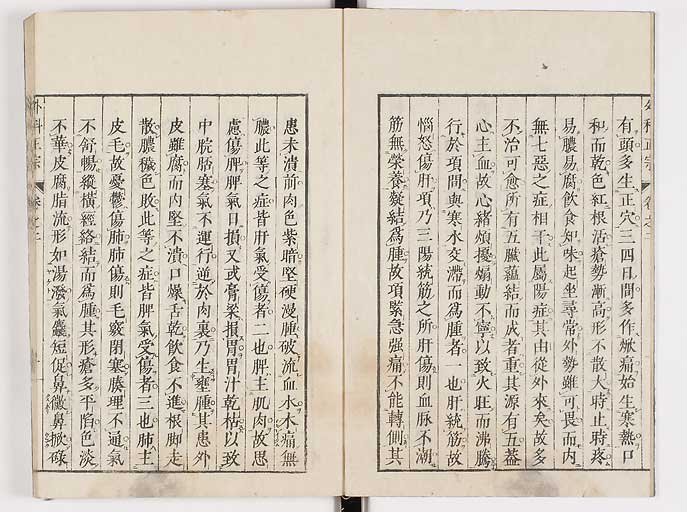 外科正宗 卷之二
有頭多生正穴三四日間多作焮痛始生寒熱口
和而乾色紅根活瘡勢漸高形不散大時止時疼
易膿易腐飲食知味起坐尋常外勢雖可畏而内
無七惡之症相干此屬陽症其由從外來矣故多
不治可愈所有五臟蘊結而成者重其源有五蓋
心主血故心緒煩擾煽動不寧以致火旺而沸騰
行於項間與寒水交滯而爲腫者一也肝統筋故
惱怒傷肝項乃三陽統筋之所肝傷則血脈不潮
筋無榮養凝結爲腫故項緊急強痛不能轉側其
患未潰前肉色紫暗堅硬漫腫破流血水木痛無
膿此等之症皆肝氣受傷者二也脾主肌肉故思
慮傷脾脾氣日損又或膏粱損胃胃汁乾枯以致
中脘痞塞氣不運行逆於肉裏乃生壅腫其患外
皮雖腐而肉堅不潰口燥舌乾飲食不進根脚走
散膿穢色敗此等之症皆脾氣受傷者三也肺主
皮毛故憂鬱傷肺肺傷則毛竅閉塞腠理不通氣
不舒暢縱橫經絡結而爲腫其形瘡多平陷色淡
不華皮腐脂流形如湯潑氣麄短促鼻鼻掀碌
外科正宗 卷之二